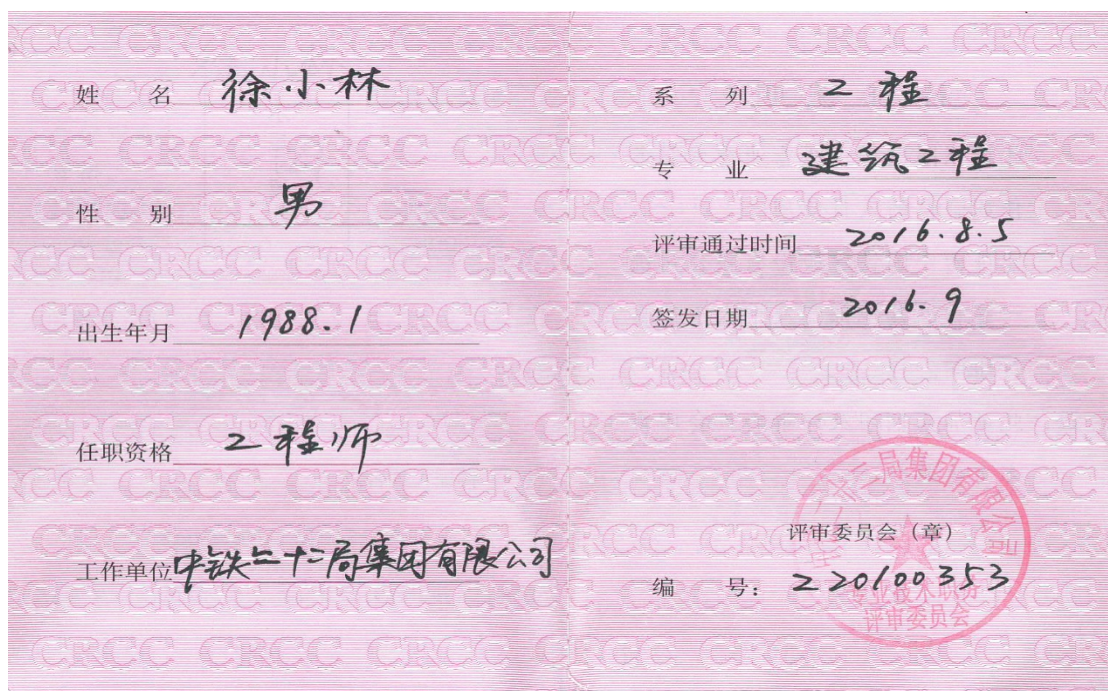 姓 名 徐小林
性 别 男
出生年月 1988.1
任职资格 工程师
工作单位 中铁二十二局集团有限公司
系 列 工程
专 业 建筑工程
评审通过时间 2016.8.5
签发日期 2016.9
评审委员会（章）
编 号：220100353
局集团有限公司
专业技术职务
评审委员会
CRCC